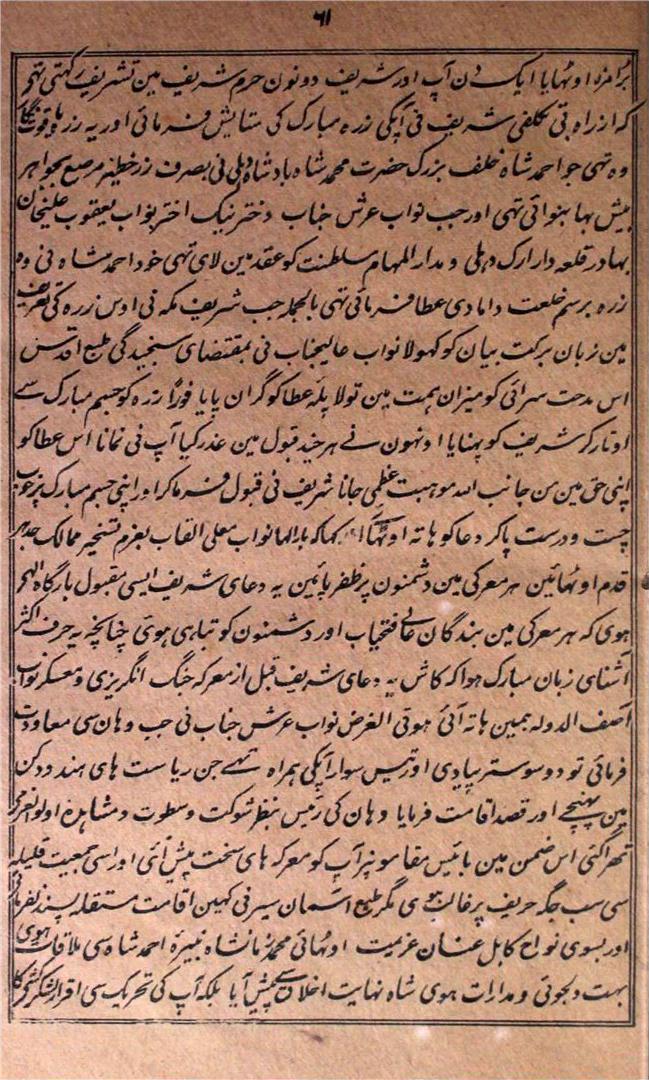 ۶۱
بڑا مزہ اوٹہایا ایک دن آپ اور شریف دونون حرم شریف مین تشریف رکہتی تہی
کہ از راہ بی تکلفی شریف نی آپکی زرہ مبارک کی ستایش فرمائی اور یہ زرہ
وہ تہی جو احمد شاہ خلف بزرگ حضرت محمد شاہ بادشاہ دہلی نی بصرف زر خطیر مرصع بجواہر
بیش بہا بنوائی تہی اور جب نواب عرش جناب دختر نیک اختر نواب یعقوب علیخان
بہادر قلعہ دار ارک دہلی و مدار المہام سلطنت کو عقد مین لای تہی خود احمد شاہ نی وہ
زرہ برسم خلعت دامادی عطا فرمائی تہی بالجملہ جب شریف مکہ نی اوس زرہ کی تعریف
مین زبان برکت بیان کو کہولا نواب عالیجناب نی بمقتضای سنجیدگی طبع اقدس
اس مدحت سرائی کو میزان ہمت مین تولا پلہ عطا کو گران پایا فوراً زرہ کو جسم مبارک سے
اوتار کر شریف کو پہنایا اونہون نے ہر چند قبول مین عذر کیا آپ نی نمانا اس عطا کو
اپنی حق مین من جانب اللہ موہبت عظمی جانا شریف نی قبول فرما کر اور اپنی جسم مبارک پر خوب
چست و درست پا کر دعا کو ہاتہ اوٹہا کہا کہ بار الہا نواب معلی القاب بعزم تسخیر ممالک جدہر
قدم اوٹہائین ہر معرکی مین دشمنون پر ظفر پائین یہ دعای شریف ایسی مقبول بارگاہ الہی
ہوی کہ ہر معرکی مین بندگان عالی فتحیاب اور دشمنون کو تباہی ہوئی چنانچہ یہ حرف اکثر
آشنای زبان مبارک ہوا کہ کاش یہ دعای شریف قبل از معرکہ جنگ انگریزی و معسکر نواب
آصف الدولہ ہمین ہاتہ آئی ہوتی الغرض نواب عرش جناب نی جب وہان سی معاودت
فرمائی تو دو سو ستر پیادی اور تیس سوار آپکی ہمراہ تہے جن ریاست ہای ہند و دکن
مین پہنچے اور قصد اقامت فرمایا وہان کی رئیس بنظر شوکت و سطوت و مشاہدہ اولو العزمی
تھرا گئی اس ضمن مین بائیس مقامونپر آپ کو معرکہ ہای سخت پیش آئی اور اسی جمعیت قلیلہ
سی سب جگہ حریف پر غالب ہوی مگر طبع آسمان سیر نی کہین اقامت مستقلہ پسند نفرمائی
اور بسوی نواح کابل عنان عزیمت اوٹہائی محمد زمانشاہ نبیرۂ احمد شاہ سی ملاقات ہوی
بہت دلجوئی و مدارات ہوی شاہ نہایت اخلاق سے پیش آیا بلکہ آپ کی تحریک سی اقرار لشکر کشی کا